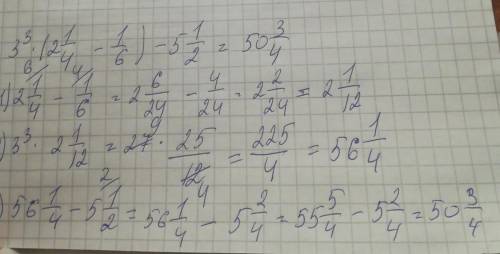 3³ · (2 1/4 - 1/6) - 5 1/2 = 50 3/4
) 2 1/4 - 1/6 = 2 6/24 - 4/24 = 2 2/24 = 2 1/12
) 3³ · 2 1/12 = 27 · 25/12 = 225/4 = 56 1/4
) 56 1/4 - 5 1/2 = 56 1/4 - 5 2/4 = 55 5/4 - 5 2/4 = 50 3/4